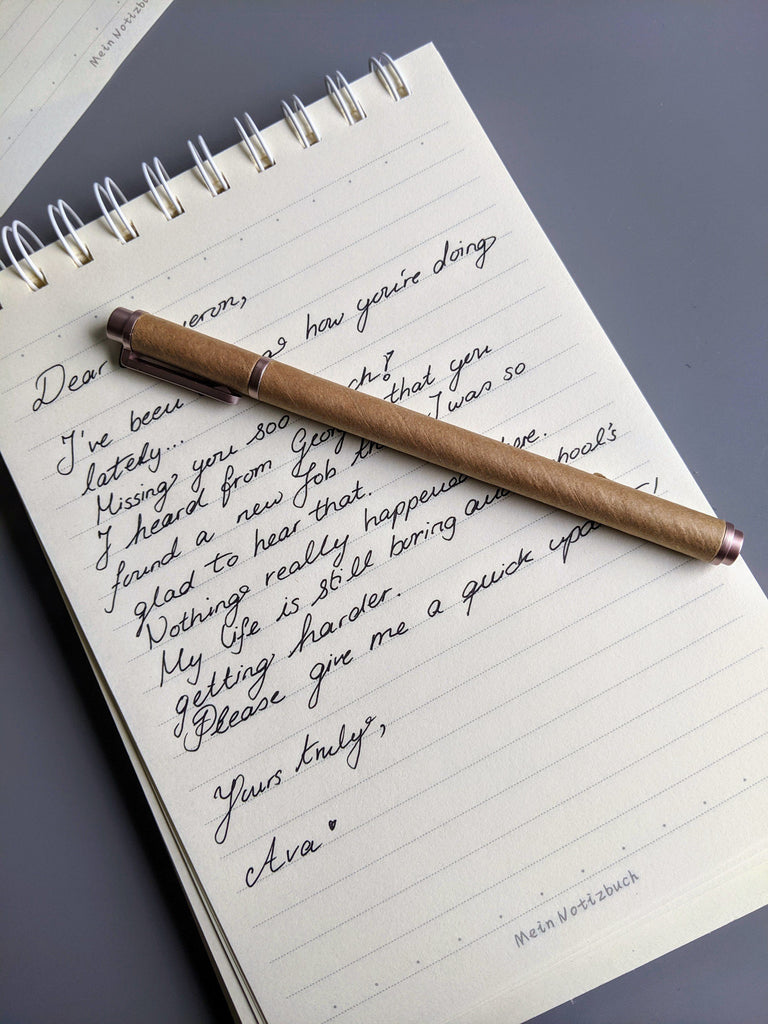 Mein Notizbu
Dear eron,
I've been how you're doing
lately...
Missing you soo ch!
I heard from Geor that you
found a new Job th I was so
glad to hear that.
Nothing really happened here.
My life is still boring and hool's
getting harder.
Please give me a quick upda !
Yours truly,
Ava
Mein Notizbuch